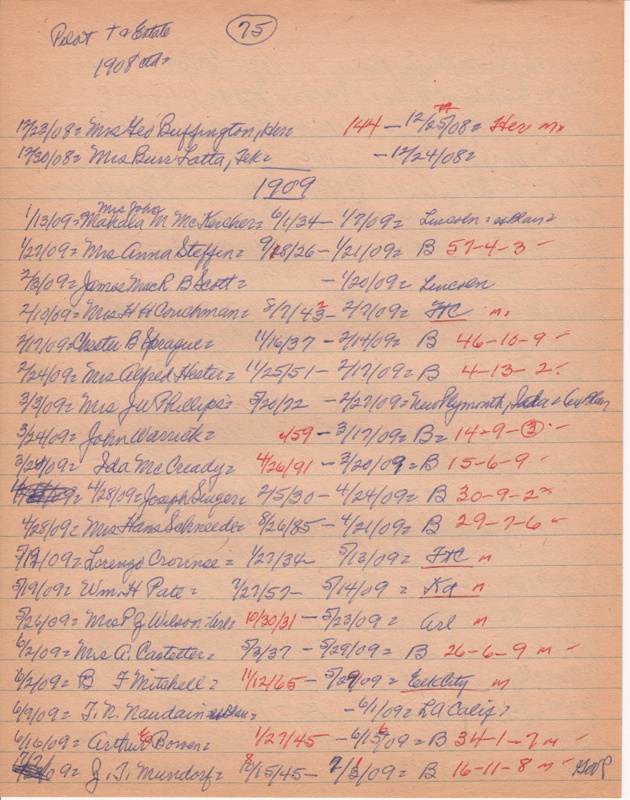 Pilot + a Estate
75
1908 ctd=
12/23/08= Mrs Geo Buffington, Her= 144 - 12/25/08= Her m
12/30/08= Mrs Burr Latta, Tek= - 12/24/08=
1909
Mrs John
1/13/09= M McKercher= 6/1/34 - 1/7/09= Lincoln =
1/27/09= Mrs Anna Steffen= 9/28/26 - 1/21/09= B 57-4-3
2/3/09= James MacR B Scott= - 1/20/09= Lincoln
2/10/09= Mrs H H Couchman= 5/7/43 - 2/7/09= FtC m
2/17/09= Chester B Sprague= 11/16/37 - 2/14/09= B 46-10-9
2/24/09= Mrs Alfred Hester= 11/25/51 - 2/17/09= B 4-13-2
3/3/09= Mrs J W Phillips= 5/20/72 - 2/27/09= New Plymouth,
3/24/09= John Warrick= 59 - 3/17/09= B= 14-9-3
3/24/09= Ida McCready= 4/26/91 - 3/20/09= B 15-6-9
4/28/09= Joseph Singer= 2/5/30 - 4/24/09= B 30-9-2
4/28/09= Mrs Hans Schneede= 8/26/85 - 4/21/09= B 29-7-6
5/19/09= Lorenzo Crounse= 1/27/34 5/13/09= FtC m
5/19/09= Wm. H Pate= 7/27/57 - 5/14/09= Kd m
5/26/09= Mrs P J Wilson= 10/30/31 - 5/23/09= Arl m
6/2/09= Mrs A. Castetter= 5/2/37 - 5/29/09= B 26-6-9 m
6/2/09= B F Mitchell= 11/12/65 - 5/29/09= Elk City m
6/9/09= T. N. Naudain - 6/1/09= LA Calif=
6/16/09= Arthur Bowen= 1/27/45 - 6/15/09= B 34-1-7 m
09= J. T. Mundorf= 8/15/45 - 7/3/09= B 16-11-8 m GVP